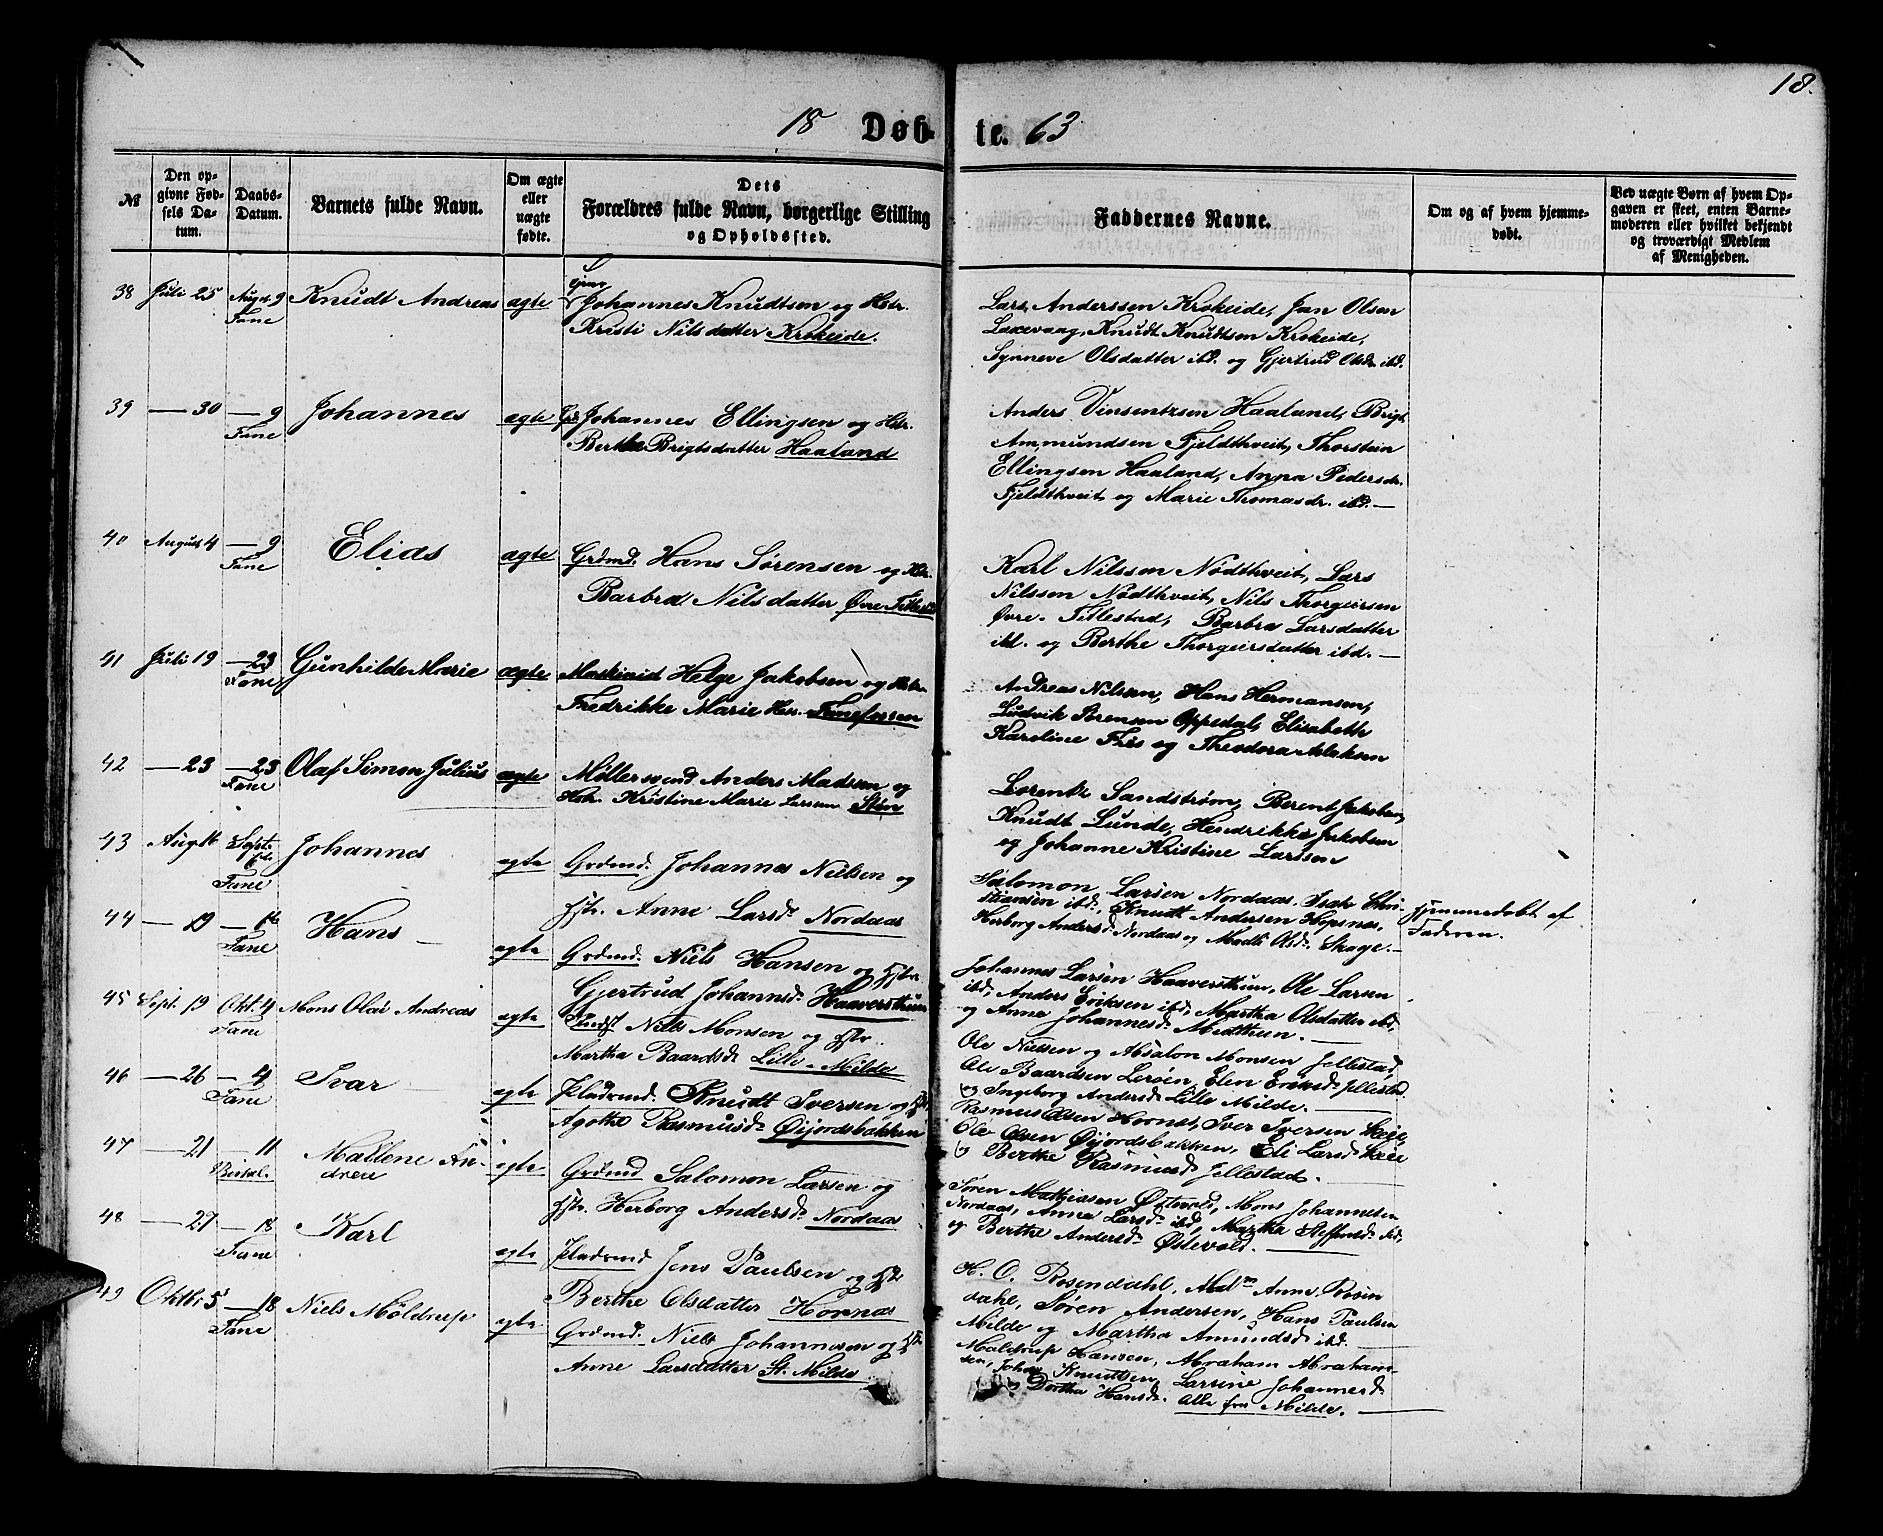 18.
18 Døb- te. 63
№
Den op-
givne Fød-
sels Da-
tum.
Daabs-
Datum.
Barnets fulde Navn.
Om ægte
eller
uægte
fødte.
Dets
Forældres fulde Navn, borgerlige Stilling
og Opholdssted.
Faddernes Navne.
Om og af hvem hjemme-
døbt.
Ved uægte Børn af hvem Op-
gaven er skeet, enten Barne-
moderen eller hvilket bekjendt
og troværdigt Medlem
af Menigheden.
38 Juli 25 Aug. 9 Fane Knudt Andreas ægte
Johannes Knudtsen og Hstr.
Kristi Nilsdatter Krokeide.
Lars Anderssen Krokeide, Jan Olson
Laxevaag, Knudt Knudtson Krokeide,
Synneve Olsdatter ibd. og Gjertrud Olsdr. ibd.
39 — 30 — 9 Fane Johannes ægte
Johannes Ellingsen og Hstr.
Bertha Brigtsdatter Haaland
Anders Vinsentzsen Haaland, Brigt
Ammundsen Fjeldthveit, Thorstein
Ellingsen Haaland, Anna Pedersdr.
Fjeldthveit og Marie Thomasdr. ibd. —
40 August 4 — 9 Fane Elias ægte
Grdmd. Hans Sørensen og Hstr.
Barbra Nilsdatter Øvre Titlestad
Karl Nilsson Nødthveit, Lars
Nilsson Nødthveit, Nils Thorgeirsen
Øvre Titlestad, Barbra Larsdatter
ibd. og Berthe Thorgeirsdatter ibd. —
41 Juli 19 — 23 Fane Gunhilde Marie ægte
Helge Jakobsen og Hstr.
Fredrikke Marie
Andreas Nilsen, Hans Hermansen,
Ludvik Sørensen Oppedal, Elisabeth
Karoline Friis og Theodora Aslaksen
42 — 23 — 23 Fane Olaf Simon Julius ægte
Møllersvend Anders Madsen og
Hstr. Kristine Marie Larssen
Lorentz Sandstrøm, Berent Jakobsen,
Knudt Lunde, Hendrikke Jakobsen
og Johanne Kristine Larssen
43 Aug. 16 Sept. 6te Fane Johannes ægte
Grdmd. Johannes Nielsen og
Hstr. Anne Larsd. Nordaas
Salomon Larsen Nordaas, Isak Chri-
stiansen ibd., Knudt Andersen Hopsnes,
Herborg Andersd. Nordaas og Marthe Olsd. Skage. —
Hjemmedøbt af
Faderen.
44 — 19 — 6te Fane Hans — ægte
Grdmd. Niels Hansen og Hstr.
Gjertrud Johannsd. Haaversthun
Johannes Larsen Haaversthun, Ole Larsen
ibd, Anders Eriksen ibd, Martha Olsdatter ibd,
og Anna Johannesd. Midtthun. —
45 Sept. 19 Okt. 4 Fane Mons Olai Andreas ægte
Niels Monsen og Hstr.
Martha Baardsd. Lille-Milde
Ole Nielsen og Absalon Monsen Jellestad,
Ole Baardsen Lerøen, Elen Eriksd. Jellestad
og Ingeborg Andersd. Lille Milde. —
46 — 26 — 4 Fane Ivar ægte
Pladsmd. Knudt Iversen og Hstr.
Agathe Rasmusd. Øijordsbakken
Rasmus Olsen Hornes, Iver Iversen Skeie,
Ole Olsen Øijordsbakken, Eli Larsd. Skeie
og Berthe Rasmusd. Jellestad. —
47 — 21 — 11 Birkel. Mallene An-
drea ægte
Grdmd Salomon Larsen og
Hstr. Herborg Andersd. Nordaas
Søren Mathiasen Østevold, Mons Johannesen
Nordaas, Anna Larsd. ibd, Martha Steffensd. ibd,
og Berthe Andersd. Østevold. —
48 — 27 — 18 Fane Karl ægte
Pladsmd Jens Paulsen og Hstr
Berthe Olsdatter Hornæs
H. O. Rosendahl, Madm Anne Rosen
dahl, Søren Andersen, Hans Paulsen
Milde og Martha Amundsd. ibd.
49 Oktbr 5 — 18 Fane Niels Møldrup ægte
Grdmd. Niels Johannesen og Hstr
Anne Larsdatter St. Milde
Møldrup Hansen, Abraham Abraham-
sen, Johan Knudtsen, Larsine Johannesd
og Dorthea Hansd. Alle fra Milde. —